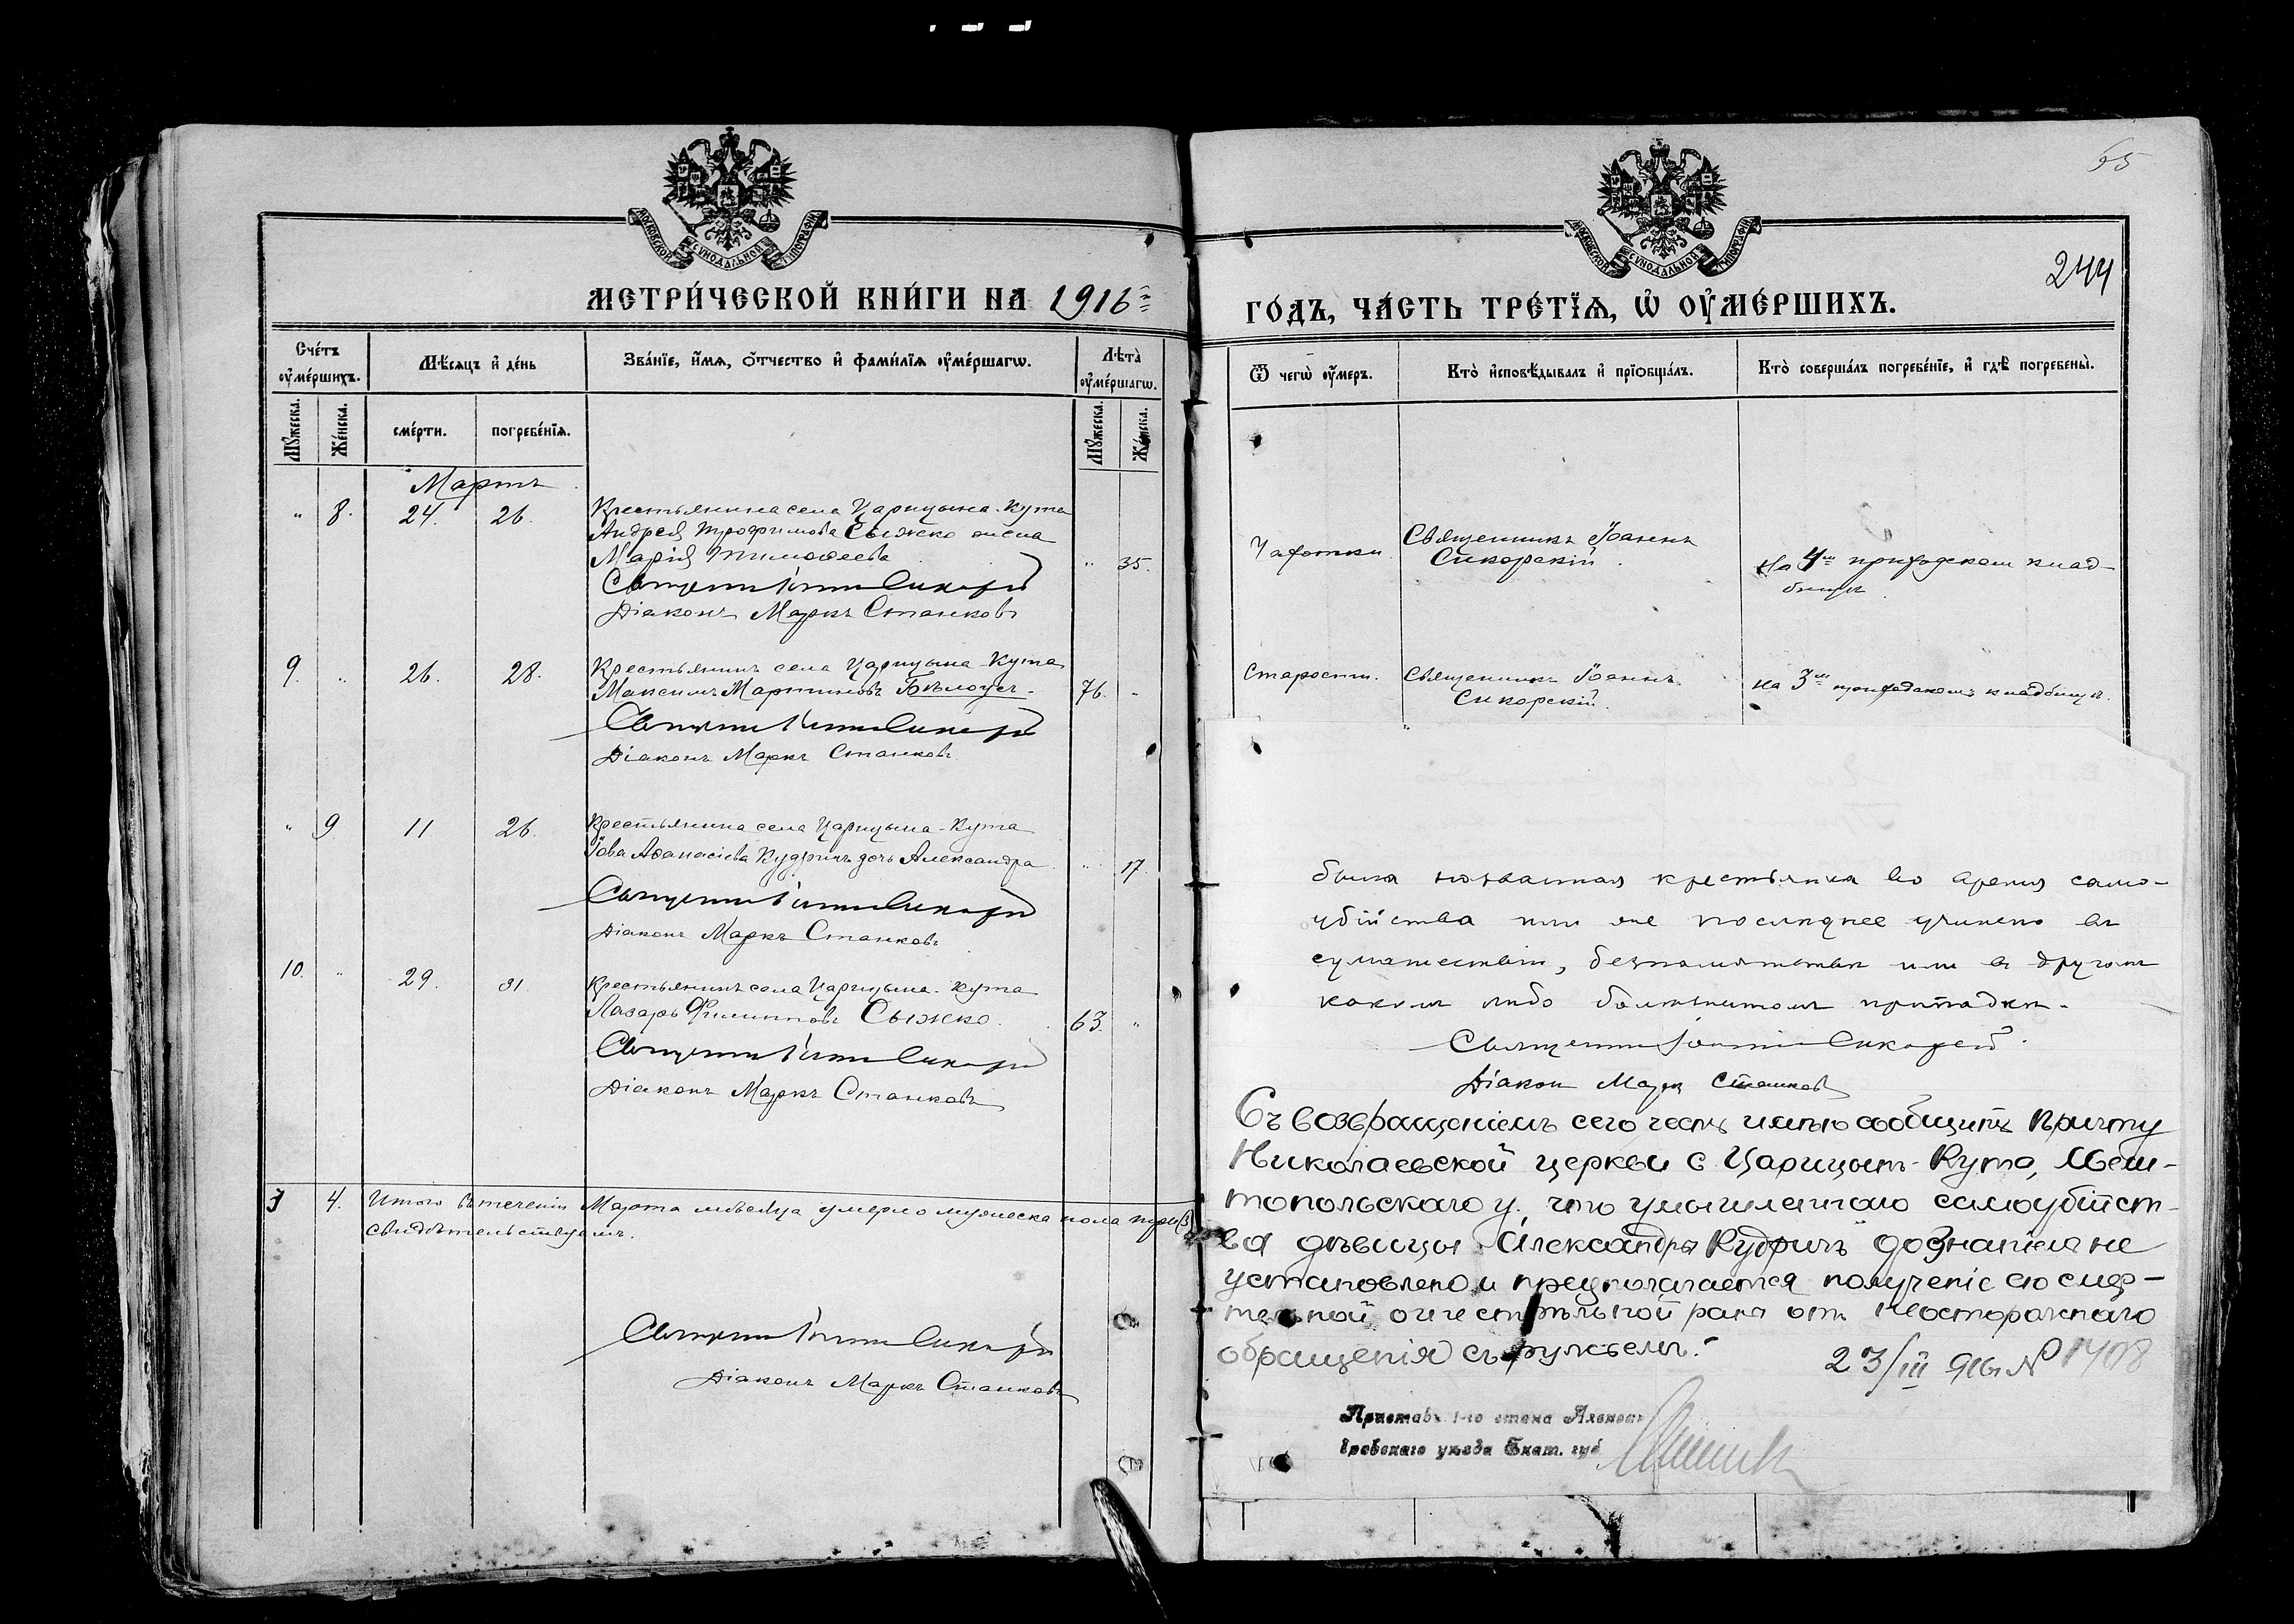 65
244
МОСКОВСКОЙ СѴНОДАЛЬНОЙ ТИПОГРАФІИ
МОСКОВСКОЙ СѴНОДАЛЬНОЙ ТИПОГРАФІИ
МЕТРИ́ЧЕСКОЙ КНИ́ГИ НА 1916й
ГО́ДЪ, ЧА́СТЬ ТРЕ́ТЇѦ, Ѡ҆ ОУ҆МЕ́РШИХЪ.
Сче́тъ оу҆ме́ршихъ.
Мѣ́сяцъ и҆ де́нь
Зва́нїе, и҆́мя, ѻ҆́тчество и҆ фами́лїя оу҆ме́ршагѡ.
Лѣта̀ оу҆ме́ршагѡ.
Ѿ чегѡ̀ оу҆́меръ.
Кто̀ и҆сповѣ́дывалъ и҆ прїѻбща́лъ.
Кто̀ соверша́лъ погребе́нїе, и҆ гдѣ̀ погребены̀.
Мꙋ́жеска.
Же́нска.
сме́рти.
погребе́нїя.
Мꙋ́жеска.
Же́нска.
Мартъ
" 8. 24. 26. Крестьянина села Царицына-Кута
Андрея Трофимова Сыжко жена
Марія Тимоѳеева " 35.
Священникъ Іоаннъ Сикорскій
Діаконъ Маркъ Станковъ
Чахотки Священникъ Іоаннъ
Сикорскій.
На 4м приходском клад-
бищѣ
9. " 26. 28. Крестьянинъ села Царицына-Кута
Максимъ Мартиновъ Бѣлоусъ. 76. "
Священникъ Іоаннъ Сикорскій
Діаконъ Маркъ Станковъ.
Старости. Священникъ Іоаннъ
Сикорскій.
на 3м приходскомъ кладбищѣ.
" 9 11 26. Крестьянина села Царицына-Кута
Іова Аѳанасіева Кудринъ дочь Александра " 17.
Священникъ Іоаннъ Сикорскій
Діаконъ Маркъ Станковъ.
10. " 29. 31. Крестьянинъ села Царицына-Кута
Лазарь Филипповъ Сыжко. 63. "
Священникъ Іоаннъ Сикорскій
Діаконъ Маркъ Станковъ
3 4. Итого въ теченіи Марта мѣсяца умерло мужеска пола три (3)
свидѣтельствуемъ.
Священникъ Іоаннъ Сикорскій
Діаконъ Маркъ Станковъ
была названная крестьянка во время само-
убійства или же последнее учинено въ
сумашествіи, безпамятствѣ или в другом
каком либо болѣзнитом припадкѣ.
Священникъ Іоаннъ Сикорскій.
Діакон Марк Станковъ
Съ возвращеніемъ сего честь имѣю сообщить Причту
Николаевской церкви с. Царицын-Кута, Мели-
топольскаго у. что умышленнаго самоубійст-
ва дѣвицы Александры Кудринъ дознаніемъ не
установлено и предполагается полученіе ею смер-
тельной огнестрѣльной раны отъ неосторожнаго
обращенія съ ружьемъ.
23/III 916 № 1408
Приставъ 1-го стана Алексан
дровскаго уѣзда Екат. губ.